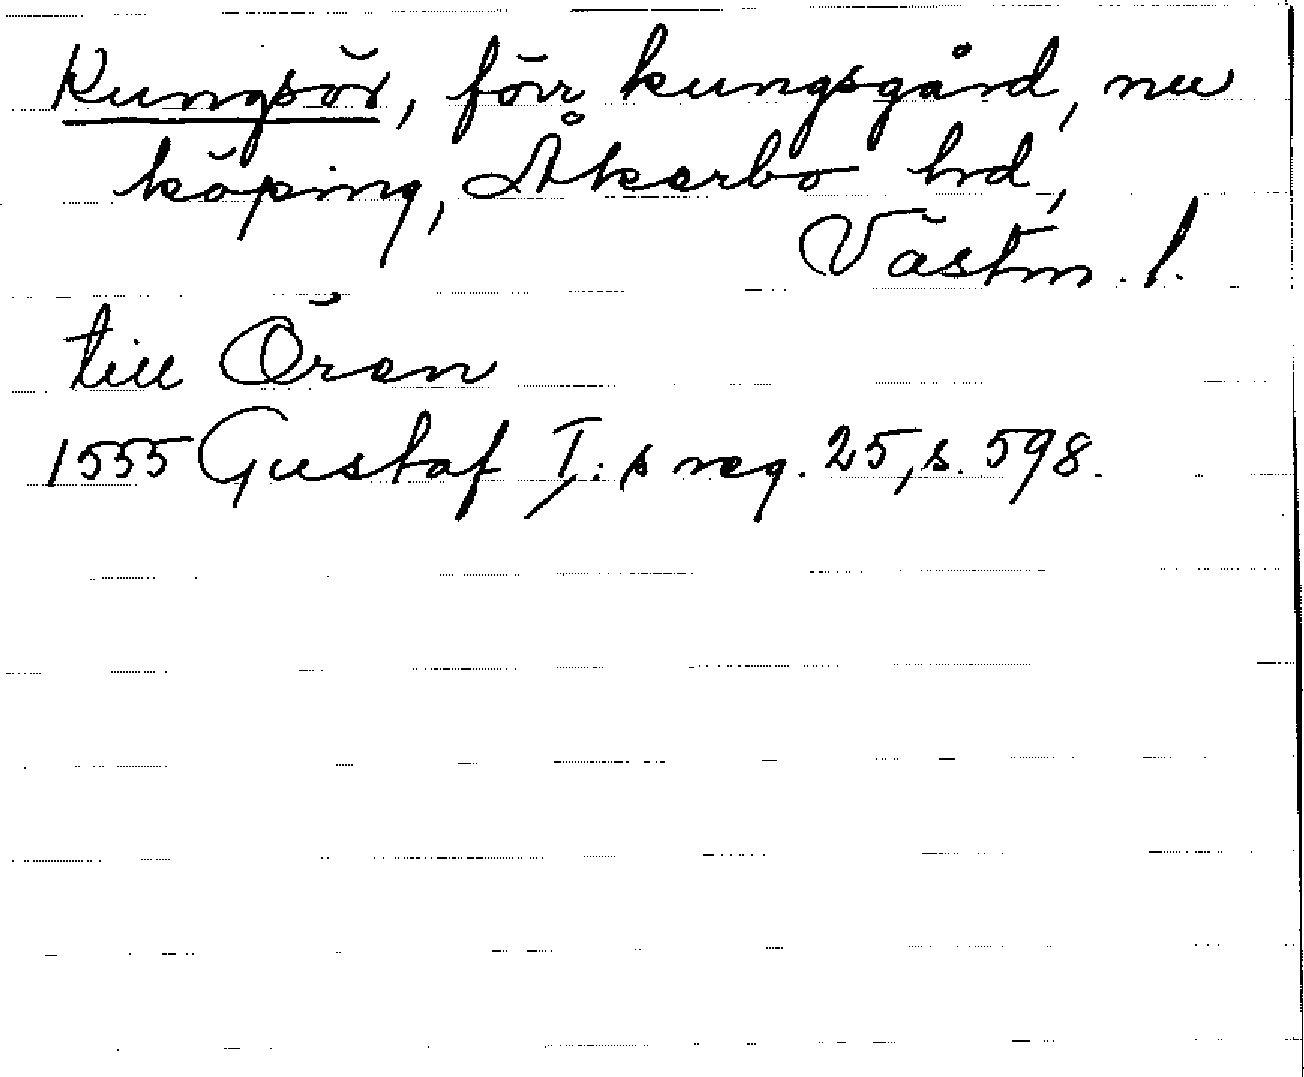 Kungsör, förr kungsgård, nu
köping, Åkerbo hd,
Västm. l.
till Ören
1555 Gustaf I:s reg. 25, s. 598.